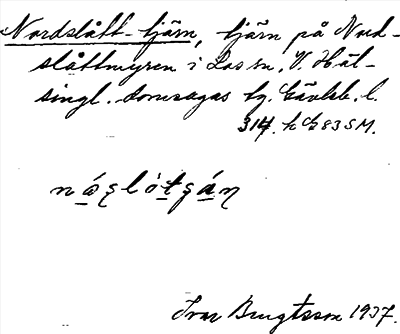 Nordslått-tjärn, tjärn på Nord-
slåttmyren i Los sn, V. Häl-
singl. domsagas tg. Gävleb. l.
314. h
Ivar Bengtsson 1937.